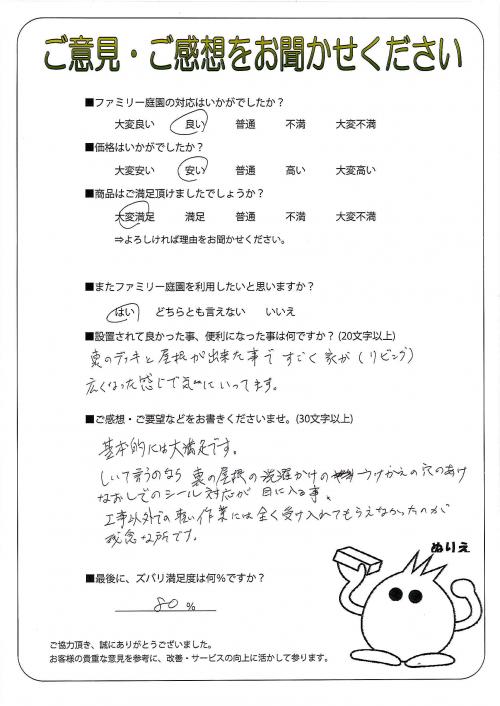 ご意見・ご感想をお聞かせください
■ファミリー庭園の対応はいかがでしたか？
大変良い 良い 普通 不満 大変不満
■価格はいかがでしたか？
大変安い 安い 普通 高い 大変高い
■商品はご満足頂けましたでしょうか？
大変満足 満足 普通 不満 大変不満
⇒よろしければ理由をお聞かせください。
■またファミリー庭園を利用したいと思いますか？
はい どちらとも言えない いいえ
■設置されて良かった事、便利になった事は何ですか？(20文字以上)
裏のデッキと屋根が出来た事ですごく家が(リビング)
広くなった感じで気にいってます。
■ご感想・ご要望などをお書きくださいませ。(30文字以上)
基本的には大満足です。
しいて言うのなら 裏の屋根の洗濯かけの つけかえの穴のあけ
なおしでのシール対応が目に入る事。
工事以外での軽い作業には全く受け入れてもらえなかったのが
残念な所です。
ぬりえ
■最後に、ズバリ満足度は何％ですか？
80 %
ご協力頂き、誠にありがとうございました。
お客様の貴重な意見を参考に、改善・サービスの向上に活かして参ります。